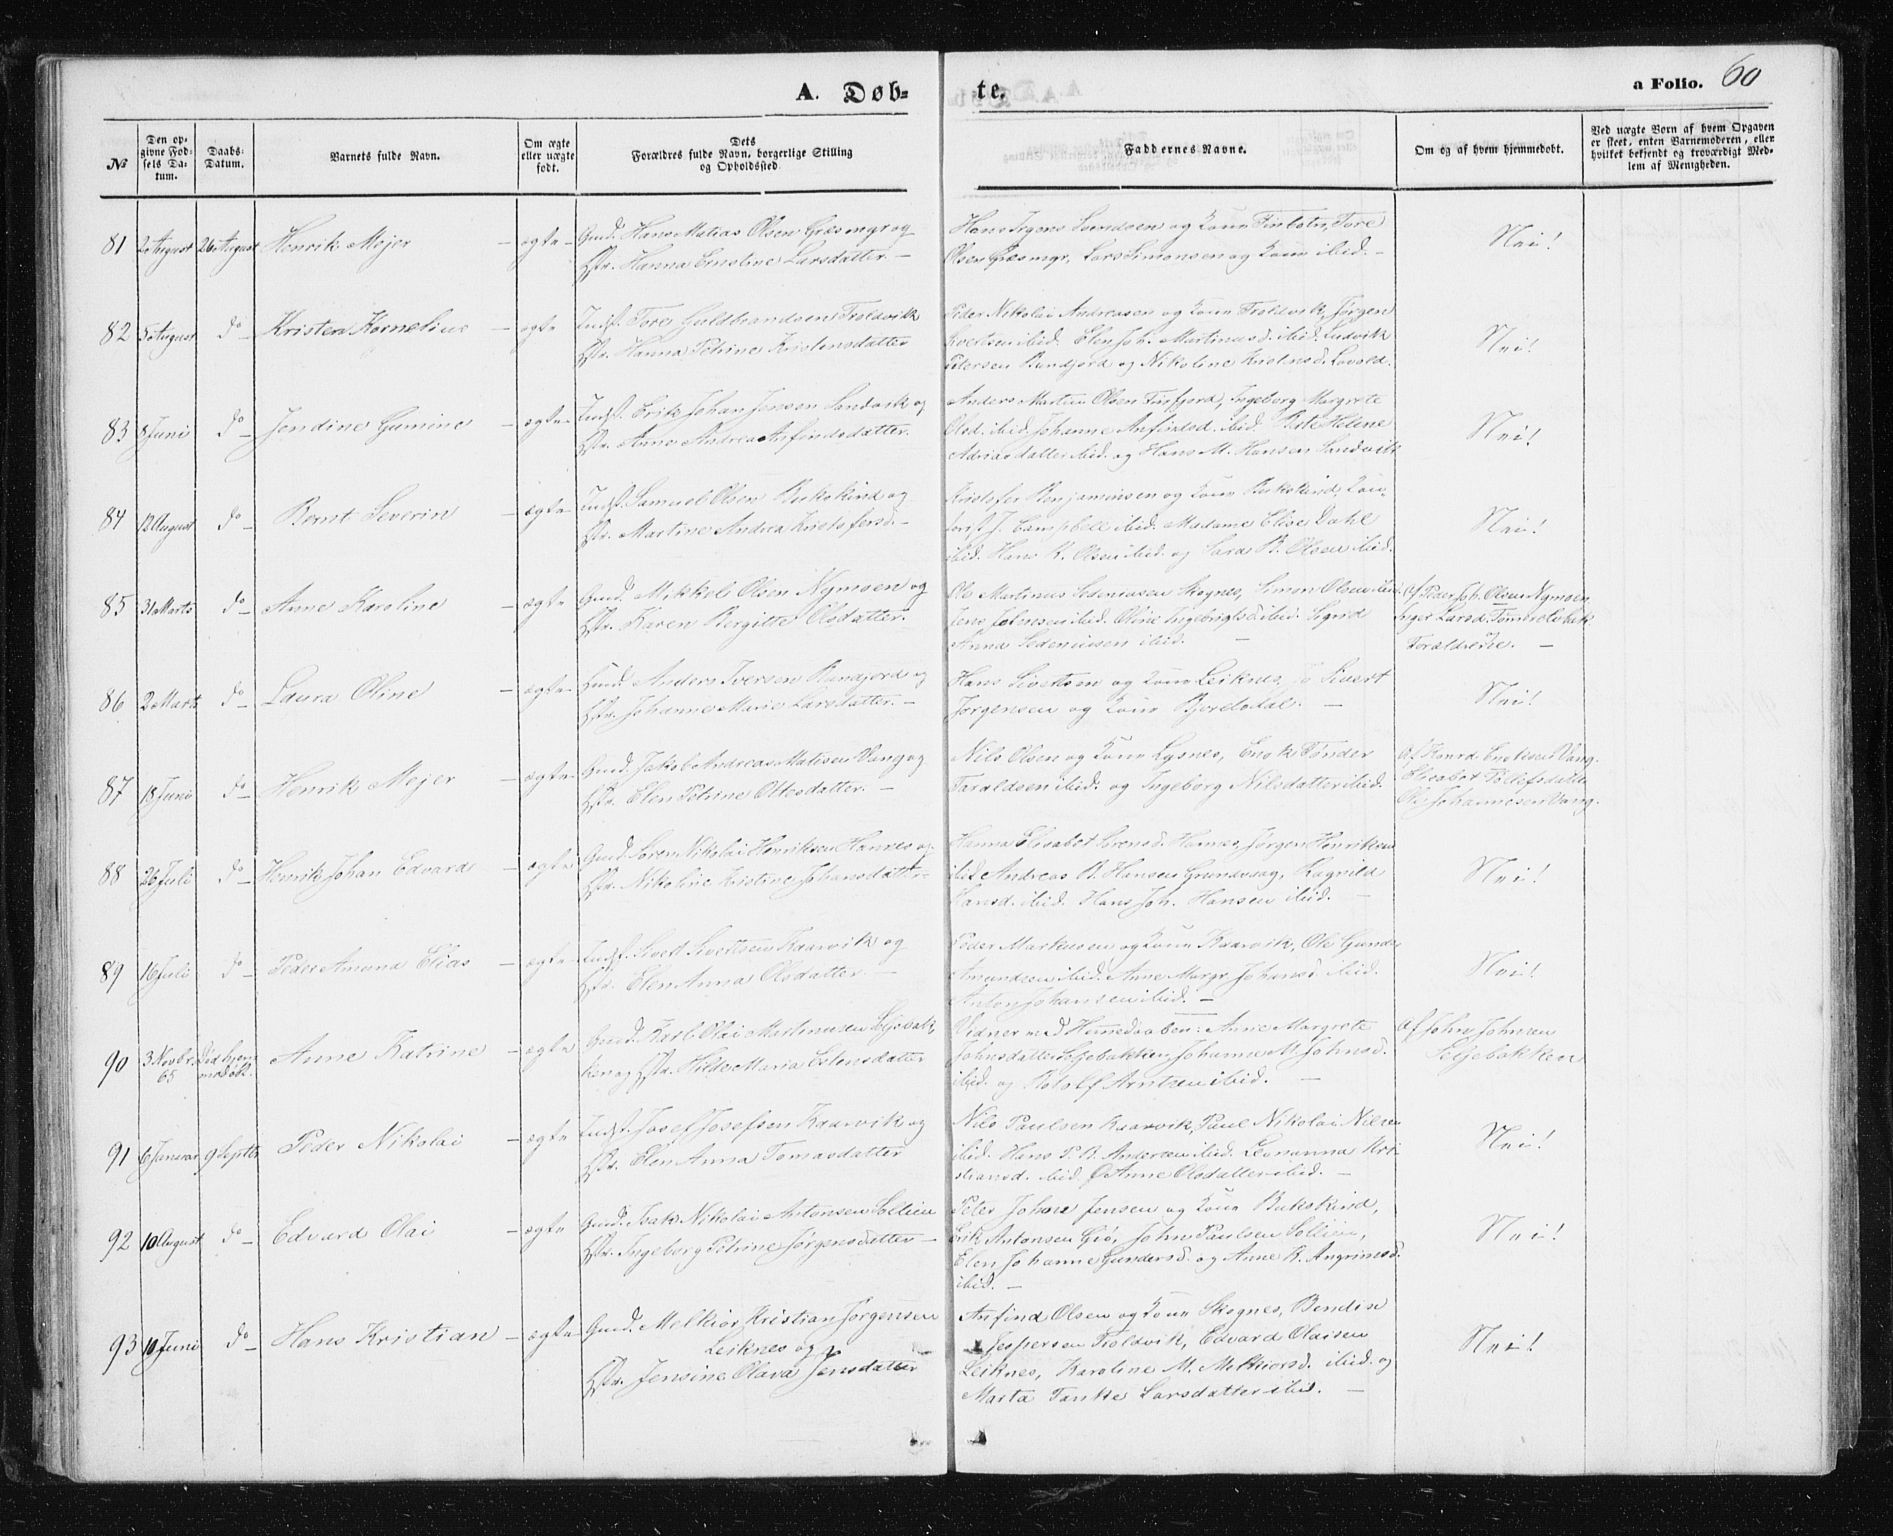 A. Døb=
te.
a Folio. 60
№
Den op=
givne Fød=
sels Da=
tum.
Daabs=
Datum.
Barnets fulde Navn.
Om ægte
eller uægte
født.
Dets
Forældres fulde Navn, borgerlige Stilling
og Opholdssted.
Faddernes Navne.
Om og af hvem hjemmedøbt.
Ved uægte Børn af hvem Opgaven
er skeet, enten Barnemoderen, eller
hvilket bekjendt og troværdigt Med=
lem af Menigheden.
81 2 August 26 August Henrik Mejer – ægte – Gmd. Hans Matias Olsen Græsmyr og
Hstr. Hanna Ernstine Larsdatter. –
Hans Svendsen og Kone Finbotn, Tore
Olsen Græsmyr, Lars Simonsen og Kone ibid. –
Nei!
82 5 August do – Kristen Kornelius – ægte Indst. Tore Guldbrandsen Troldvik
Hstr. Hanna Petrine Kristensdatter
Peder Nikolai Andreasen og Kone Troldvik, Jørgen
ibid. Elen Joh. Martinusd. ibid. Ludvik
Petersen og Nikoline Kristensd.
Nei!
83 8 Juni do – Jendine Gumine – ægte – Indst. Erik Johan Jensen Sandvik og
Hstr. Anne Andrea Anfindsdatter.
Anders Martin Olsen Furfjord, Ingeborg Margrete
Olsd. ibid. Johanne Anfindsd. ibid. Helene
Adriasdatter ibid. og Hans M. Hansen Sandvik
Nei!
84 12 August do – Bernt Severin – ægte – Indst. Samuel Olsen Bukskind og
Hstr. Martine Andrea Kristofersd. –
Kristofer Benjaminsen og Kone Bukskind,
J. Campbell ibid. Madame Elise Dahl
ibid. Hans K. Olsen ibid. og Sara B. Olsen ibid.
Nei!
85 31 Marts do – Anne Karoline – ægte Gmd. Mikkel Olsen Nymoen og
Hstr. Karen Bergitte Olsdatter.
Ole Martinus Sedeniusen Skognes, Simon Olsen ibid.
Jens Jensen ibid. Oline Ingebrigtsd. ibid. Sigrid
Anna Sedeniusen ibid. –
Af Peder Joh. Olsen Nymoen
Larsd. Tømmerelvbak
Forældrene. –
86 2 Marts do – Laura Oline – ægte – Gmd. Anders Iversen og
Hstr. Johanne Marie Larsdatter. –
Hans Sivertsen og Kone Leiknes, Sivert
Jørgensen og Kone. –
Nei!
87 18 Juni do – Henrik Mejer – ægte – Gmd. Jakob Andreas Matisen Vang og
Hstr. Elen Petrine Ottesdatter. –
Nils Olsen og Kone Lysnes, Enok Tønder
Taraldsen ibid. og Ingeborg Nilsdatter ibid.
Af Enoksen Vang.
Elisabet
Ole Johannesen Vang.
88 26 Juli do – Henrik Johan Edvard – ægte Gmd. Søren Nikolai Henriksen Hannes og
Hstr. Nikoline Kristine Johansdatter –
Hanna Elisabet Sørensd. Hannes, Jørgen Henriksen
ibid. Andreas B. Hansen Grundvaag, Ragnild
Hansd. ibid. Hans Joh. Hansen ibid. –
Nei!
89 16 Juli do – Peder Amund Elias – ægte – Indst. Sivert Sivertsen Kaarvik og
Hstr. Elen Anna Olsdatter –
Peder Markusen og Kone Kaarvik, Ole
Amundsen ibid. Anne Margr. Johansd. ibid.
Anton Johansen ibid. –
Nei!
90 3 Novbr. 65 Anne Katrine – ægte Gmd. Karl Olai Martinusen Seljebak
ken og Hstr. Hilde Maria Estensdatter
Vidner ved Hjemmedaaben: Anne Margrete
Johnsdatter Seljebakken, Johanna M. Johnsd.
ibid. og Rolf Arntsen ibid. –
Af John Johnsen
Seljebakken
91 6 Januar 9 Septbr. Peder Nikolai – ægte Indst. Josef Josefsen Kaarvik og
Hstr. Elen Anna Tomasdatter
Nils Paulsen Kaarvik, Paul Nikolai Nilsen
ibid. Hans P. B. Andersen ibid. Leonanna Kri-
stiansd. ibid. & Anne Olsdatter ibid. –
Nei!
92 10 August do – Edvard Olai – ægte – Gmd. Isak Nikolai Antonsen Sollien
Hstr. Ingeborg Petrine Jørgensdatter –
Peter Johan Jensen og Kone Bukskind,
Erik Antonsen Giø, John Paulsen Sollien,
Elen Johanne Gundersd. og Anne K. Angrimsd.
ibid. –
Nei!
93 10 Juni do – Hans Kristian – ægte – Gmd. Melkior Kristian Jørgensen
Leiknes og
Hstr. Jensine Olava Jensdatter
Anfind Olsen og Kone Skognes, Bendix
Jespersen Troldvik, Edvard Olaisen
Leiknes, Karoline M. Melkiorsd. ibid. og
Marta Tankke Larsdatter ibid. –
Nei!